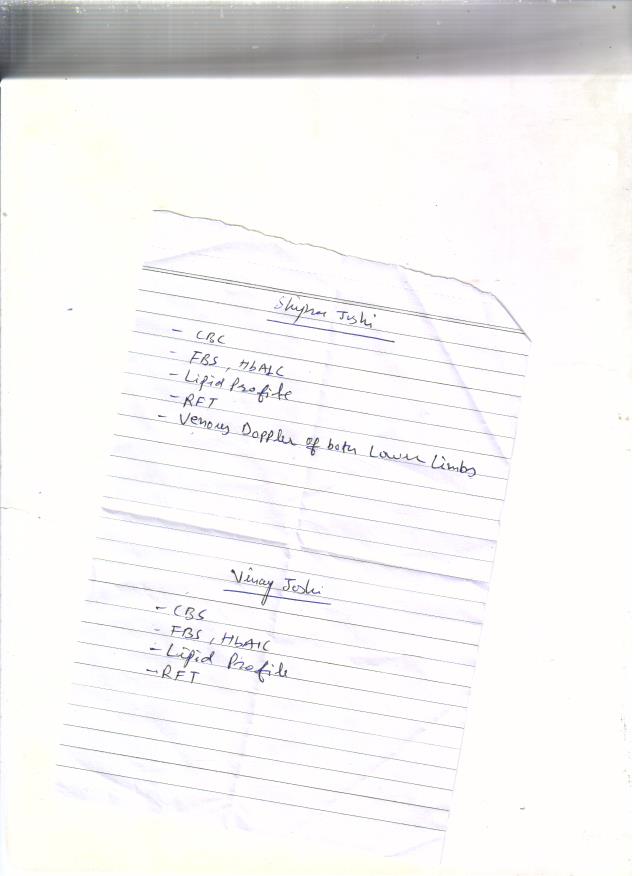 Shipra Joshi
- CBC
- FBS, HbA1C
- Lipid Profile
- RFT
- Venous Doppler of both Lower Limbs
Vinay Joshi
- CBS
- FBS, HbA1C
- Lipid Profile
- RFT